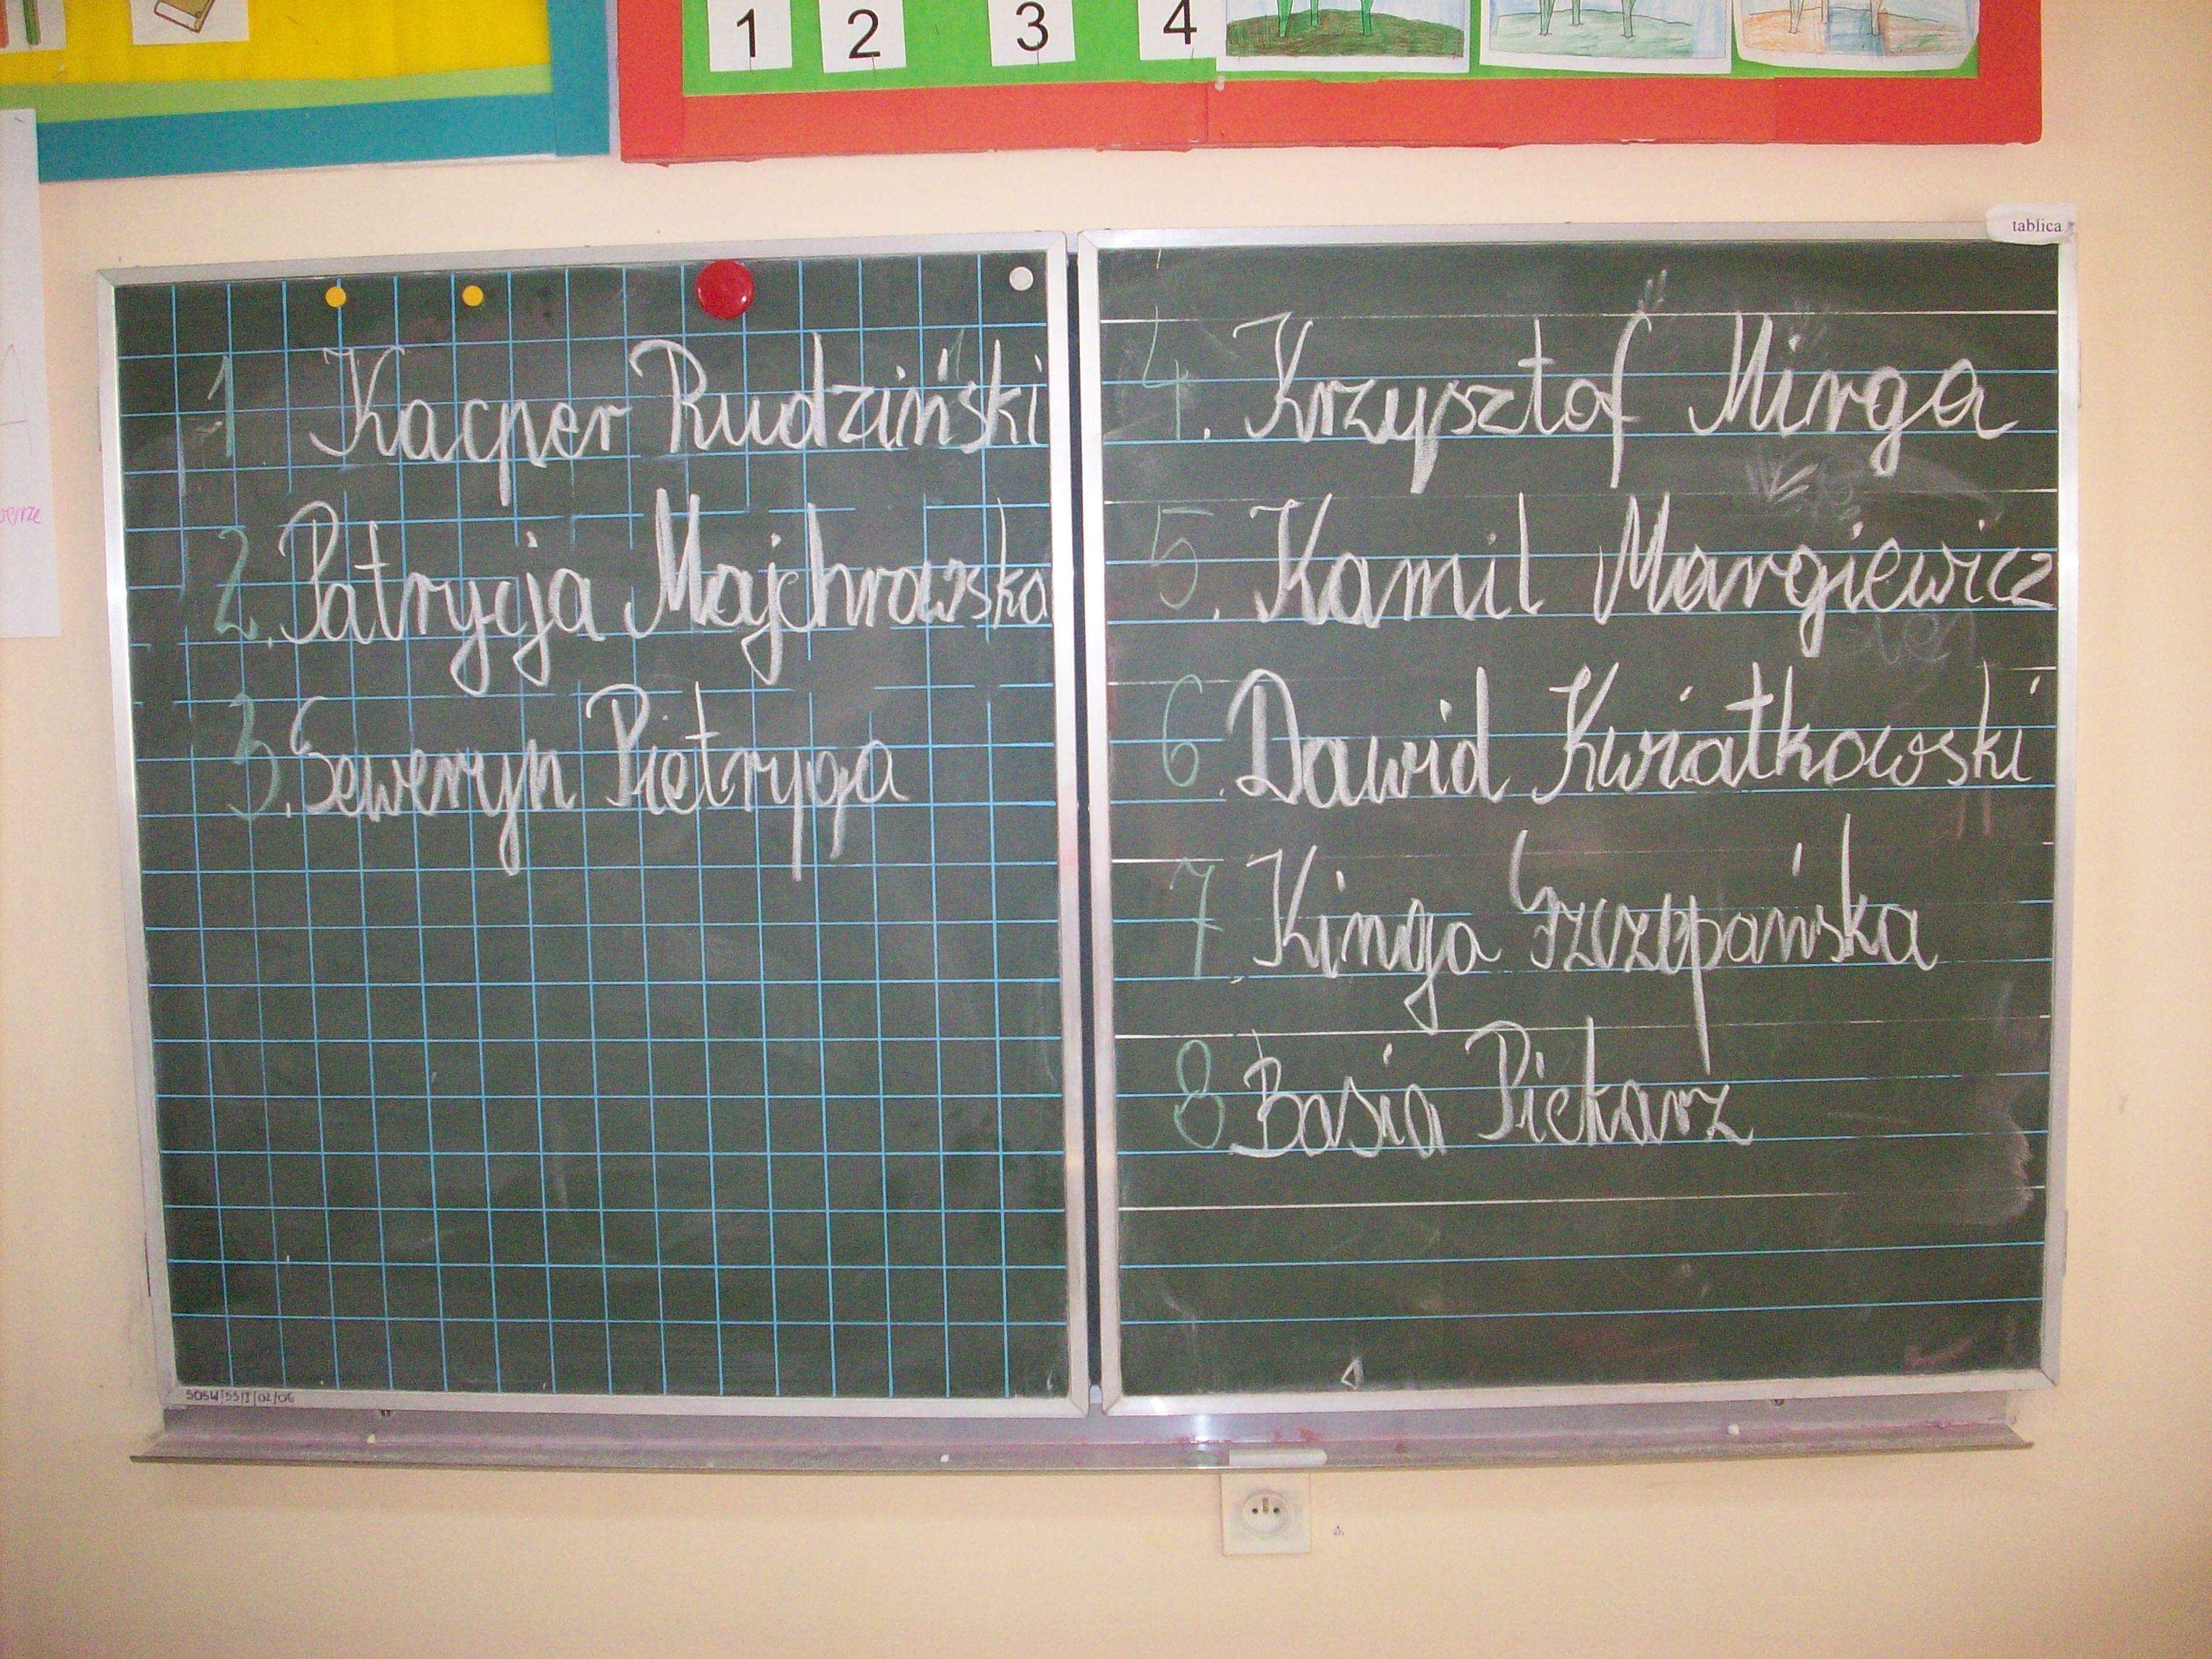 1 2 3 4
tablica
1 Kacper Rudziński
2. Patrycja Majchrowska
3. Seweryn Pietryga
4. Krzysztof Mirga
5. Kamil Margiewicz
6. Dawid Kwiatkowski
7. Kinga Szczepańska
8 Basia Piekarz